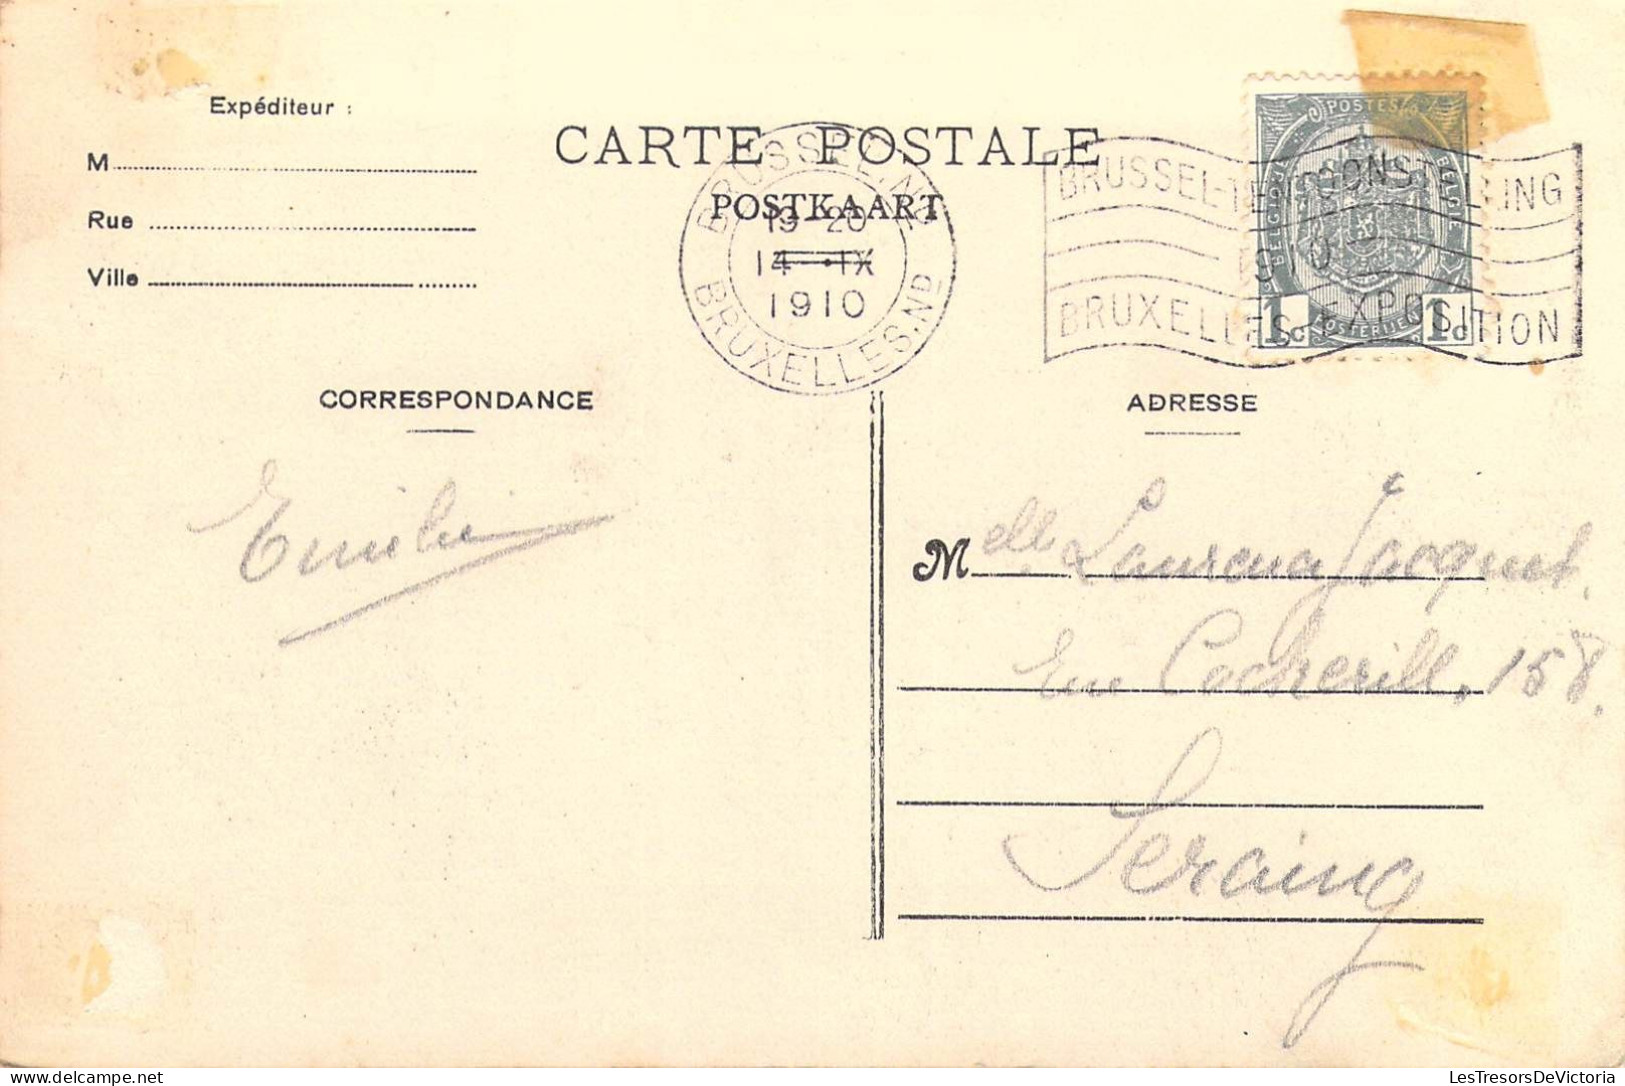 Expéditeur :
M
Rue
Ville
CARTE POSTALE
POSTKAART
BRUSSEL.Nd
19-20
14 - IX
1910
BRUXELLES.ND
POSTES
BELGIQUE
BELGIE
POSTERIJEN
1c 1c
BRUSSEL-TENTOONSTELLING
1910
BRUXELLES-EXPOSITION
CORRESPONDANCE
Emilie
ADRESSE
Melle Jacquet.
Cockerill, 158.
Seraing
LesTresorsDeVictoria